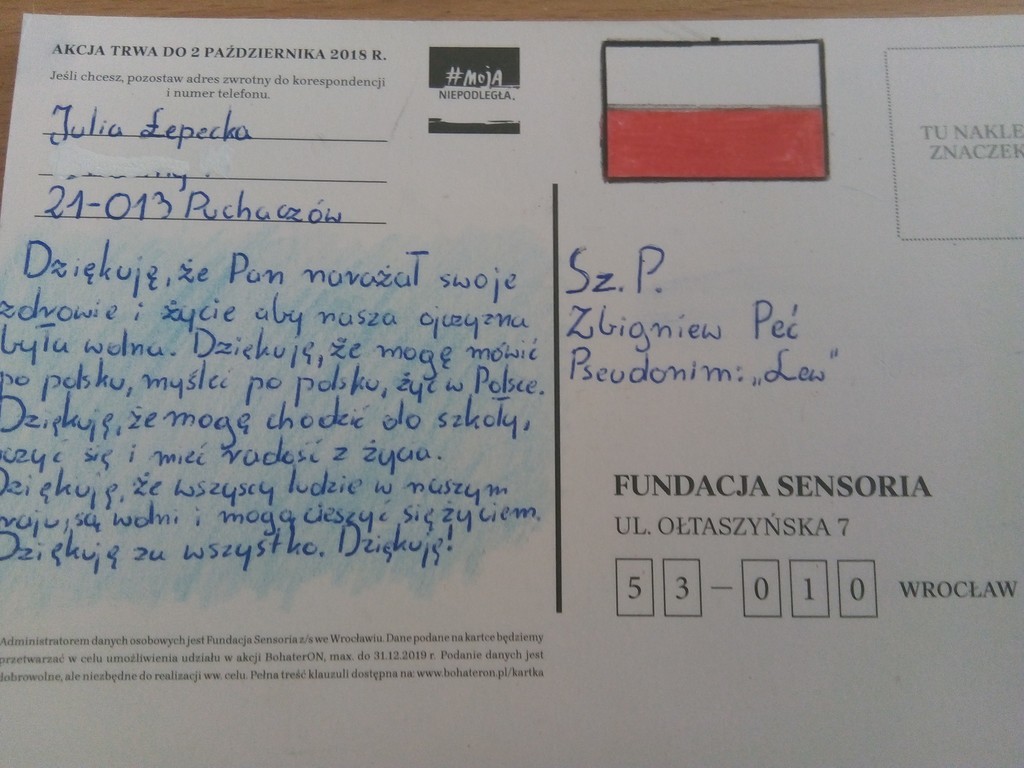 AKCJA TRWA DO 2 PAŹDZIERNIKA 2018 R.
Jeśli chcesz, pozostaw adres zwrotny do korespondencji
i numer telefonu.
Julia Łepecka
21-013 Puchaczów
#MOJA
NIEPODLEGŁA.
TU NAKLE
ZNACZEK
Dziękuję, że Pan narażał swoje
zdrowie i życie aby nasza ojczyzna
była wolna. Dziękuję, że mogę mówić
po polsku, myśleć po polsku, żyć w Polsce.
Dziękuję, że mogę chodzić do szkoły,
uczyć się i mieć radość z życia.
Dziękuję, że wszyscy ludzie w naszym
raju, są wolni i mogą cieszyć się życiem.
Dziękuję za wszystko. Dziękuję!
Sz. P.
Zbigniew Peć
Pseudonim: „Lew"
FUNDACJA SENSORIA
UL. OŁTASZYŃSKA 7
53-010 WROCŁAW
Administratorem danych osobowych jest Fundacja Sensoria z/s we Wrocławiu. Dane podane na kartce będziemy
przetwarzać w celu umożliwienia udziału w akcji BohaterON, max. do 31.12.2019 r. Podanie danych jest
dobrowolne, ale niezbędne do realizacji ww. celu. Pełna treść klauzuli dostępna na: www.bohateron.pl/kartka